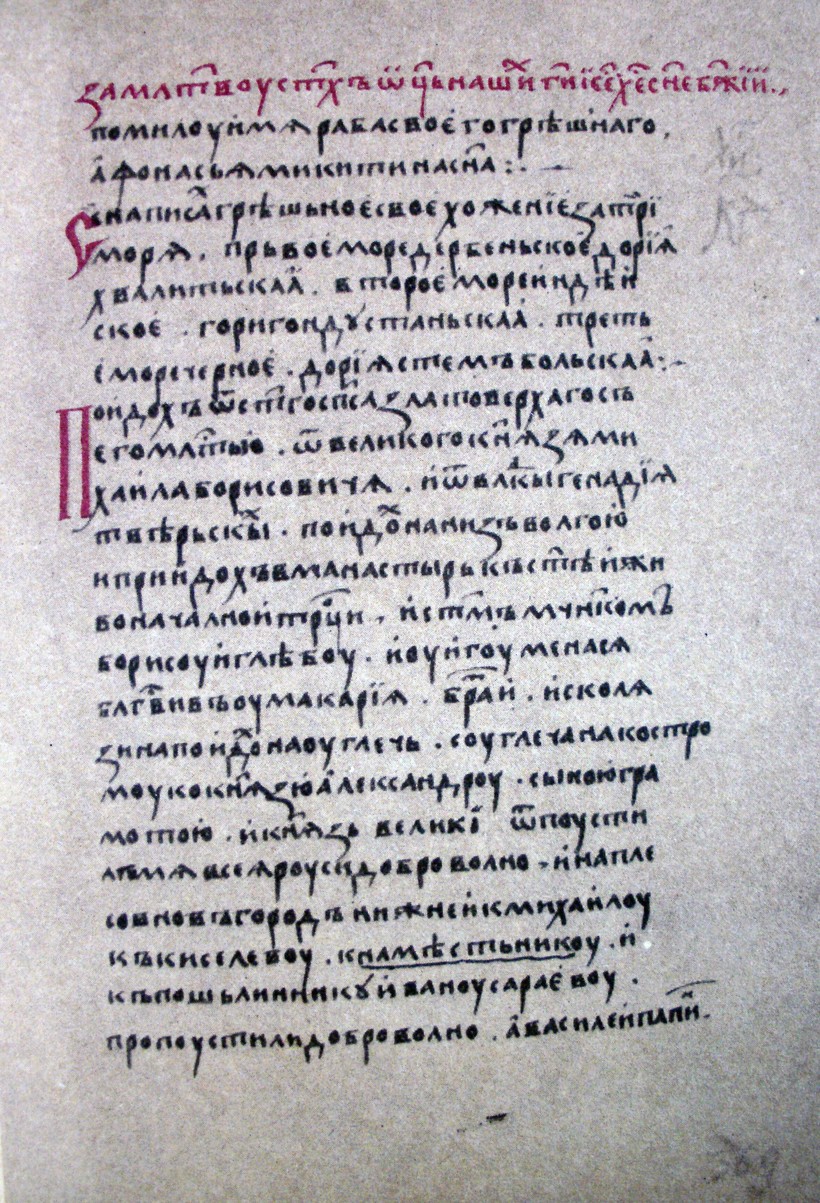 замлт҃воустх҃ъѿц҃ьнашⷯи г҃ні҃се҃ х҃ес҃не б҃жїи.,
помилоуимѧрабасвоегогрѣшнаго.
афонасьѧмикитинасн҃а:.
Се написⷶ грѣшьноесвоехоженїезатрⷬ҇и
морѧ. прьвоемореде҃рбеньское, дорїѧ
хвалитьскаа. второеморе, индѣи
ское. горигондустаньскаа. треть
еморечерное. дорїѧстемъбольскаа:.
Поидохъѿст҃госп҃сазлатоверхагосъ
егомлт҃ью. ѿвеликогокнѧзѧми
хаилаборисовичѧ. иѿвлⷣкыгенадїѧ
твѣрьскⷯы. поидⷯонанизъволгою
иприидохъвманастырькъст҃ѣижи
воначалнойтрⷪ҇ци. ист҃мъмчн҃комъ
борисоуиглѣбоу. иоуигоуменасѧ
блг҃вивъоумакарїѧ. братⷯи. исколѧ
зинапоидⷯонаоуглечь. соуглечанакостро
моукокнѧзюалександроу. сыноюгра
мотою. икнѧзь великї ѿпоусти
лъмѧвсеѧроусидоброволно. инапле
совновъгороднижнеикмихаилоу
къкиселевоу. кнамѣстьникоу. и
къпошьлинникуиваноусараевоу.
пропоустилидоброволно. авасилеипапⷩи.
369